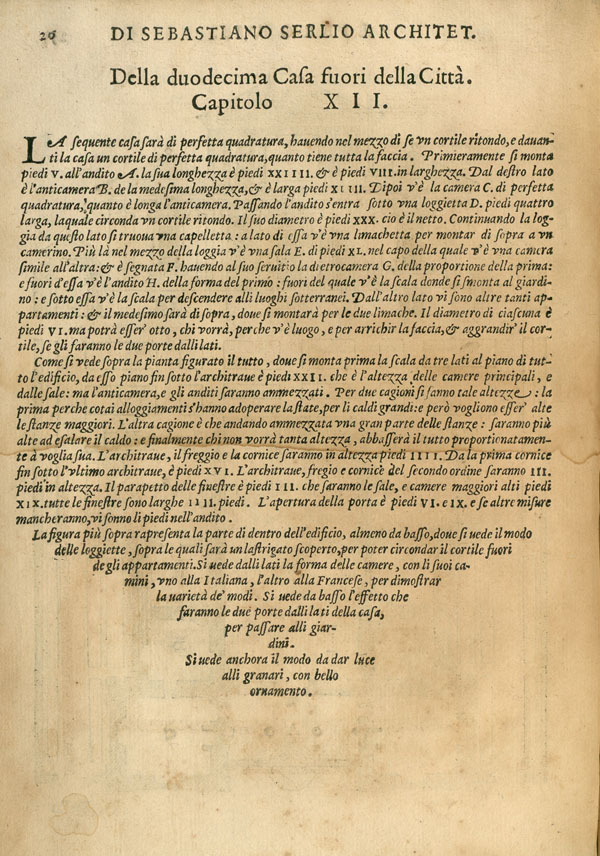 26 DI SEBASTIANO SERLIO ARCHITET.
Della duodecima Casa fuori della Città.
Capitolo X I I.
LA sequente casa sarà di perfetta quadratura, hauendo nel mezzo di se vn cortile ritondo, e dauan-
ti la casa vn cortile di perfetta quadratura, quanto tiene tutta la faccia. Primieramente si monta
piedi V. all'andito A. la sua longhezza è piedi XXIIII. & è piedi VIII. in larghezza. Dal destro lato
è l'anticamera B. de la medesima longhezza, & è larga piedi XIIII. Dipoi v'è la camera C. di perfetta
quadratura, quanto è longa l'anticamera. Passando l'andito s'entra sotto vna loggietta D. piedi quattro
larga, laquale circonda vn cortile ritondo. Il suo diametro è piedi XXX. cio è il netto. Continuando la log-
gia da questo lato si truoua vna capelletta: a lato di essa v'è vna limachetta per montar di sopra a vn
camerino. Più là nel mezzo della loggia v'è vna sala E. di piedi XL. nel capo della quale v'è vna camera
simile all'altra: & è segnata F. hauendo al suo seruitio la dietrocamera G. della proportione della prima:
e fuori d'essa v'è l'andito H. della forma del primo: fuori del quale v'è la scala donde si smonta al giardi-
no: e sotto essa v'è la scala per descendere alli luoghi sotterranei. Dall'altro lato vi sono altre tanti ap-
partamenti: & il medesimo sarà di sopra, doue si montarà per le due limache. Il diametro di ciascuna è
piedi VI. ma potrà esser' otto, chi vorrà, perche v'è luogo, e per arrichir la faccia, & aggrandir' il cor-
tile, se gli faranno le due porte dalli lati.
Come si vede sopra la pianta figurato il tutto, doue si monta prima la scala da tre lati al piano di tut-
to l'edificio, da esso piano fin sotto l'architraue è piedi XXII. che è l'altezza delle camere principali, e
dalle sale: ma l'anticamera, e gli anditi saranno ammezzati. Per due cagioni si fanno tale altezze: la
prima perche cotai alloggiamenti s'hanno adoperare la state, per li caldi grandi: e però vogliono esser' alte
le stanze maggiori. L'altra cagione è che andando ammezzata vna gran parte delle stanze: saranno più
alte ad esalare il caldo: e finalmente chi non vorrà tanta altezza, abbasserà il tutto proportionatamen-
te à voglia sua. L'architraue, il freggio e la cornice saranno in altezza piedi IIII. Da la prima cornice
fin sotto l'vltimo architraue, è piedi XVI. L'architraue, fregio e cornice del secondo ordine saranno III.
piedi in altezza. Il parapetto delle finestre è piedi III. che saranno le sale, e camere maggiori alti piedi
XIX. tutte le finestre sono larghe IIII. piedi. L'apertura della porta è piedi VI. e IX. e se altre misure
mancheranno, vi sonno li piedi nell'andito.
La figura più sopra rapresenta la parte di dentro dell'edificio, almeno da basso, doue si vede il modo
delle loggiette, sopra le quali sarà un lastrigato scoperto, per poter circondar il cortile fuori
de gli appartamenti. Si vede dalli lati la forma delle camere, con li suoi ca-
mini, vno alla Italiana, l'altro alla Francese, per dimostrar
la varietà de' modi. Si vede da basso l'effetto che
faranno le due porte dalli lati della casa,
per passare alli giar-
dini.
Si vede anchora il modo da dar luce
alli granari, con bello
ornamento.